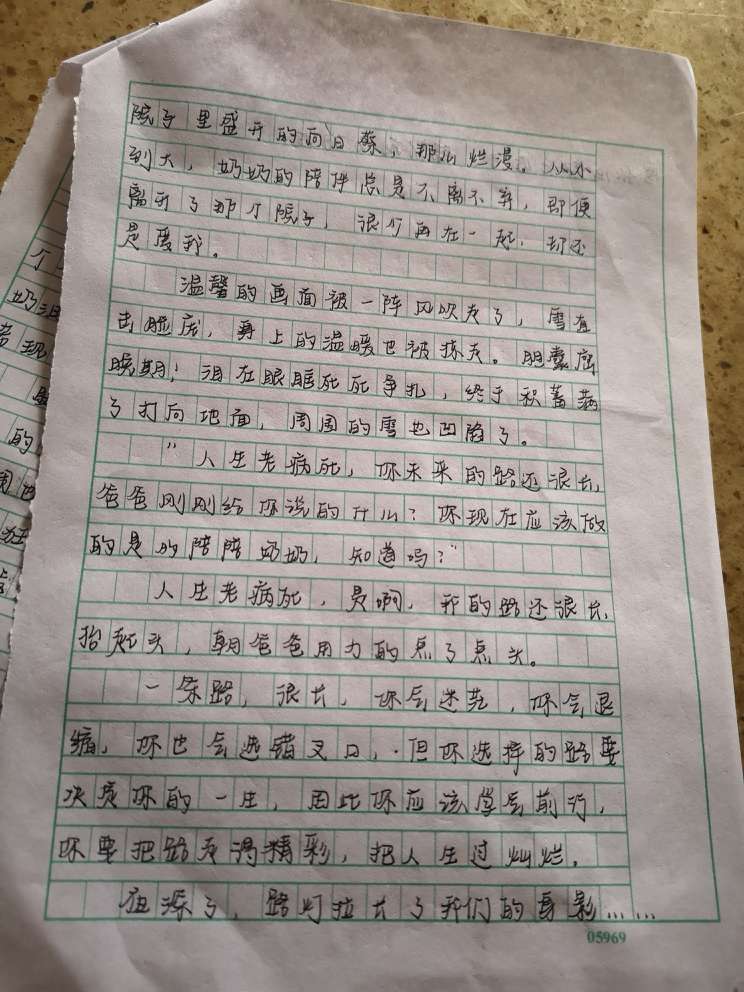 院子里盛开的向日葵，那么烂漫。从小
到大，奶奶的陪伴总是不离不弃，即便
离开了那个院子，很少再在一起，却还
是爱我。
温馨的画面被一阵风吹灭了，雪直
击脸庞，身上的温暖也被抹灭。胆囊癌
晚期！泪在眼眶死死争扎，终于积蓄满
了打向地面，周围的雪也凹陷了。
"人生老病死，你未来的路还很长，
爸爸刚刚给你说的什么？你现在应该做
的是的陪陪奶奶，知道吗？"
人生老病死，是啊，我的路还很长，
抬起头，朝爸爸用力的点了点头。
一条路，很长，你会迷茫，你会退
缩，你也会选错叉口，但你选择的路要
决责你的一生，因此你应该学会前行，
你要把路走得精彩，把人生过灿烂。
夜深了，路灯拉长了我们的身影……
05969
个
奶
的